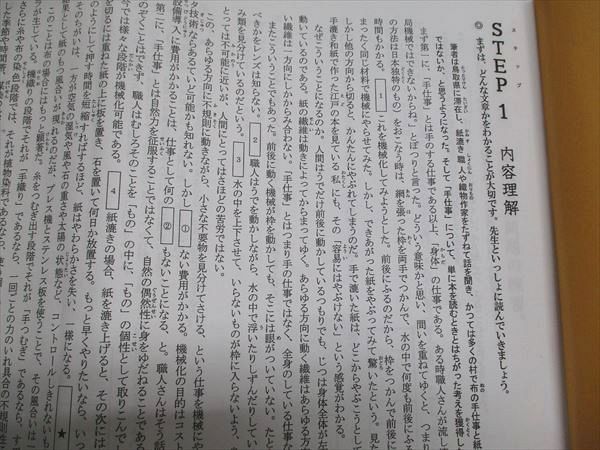 ステップ
STEP 1 内容理解
◎ まずは、どんな文章かをわかることが大切です。先生といっしょに読んでいきましょう。
筆者は鳥取県に滞在し、紙漉き職人や織物作家をたずねて話を聞き、かつては多くの村で布の手仕事と紙
ではないか、と思うようになった。そして「手仕事」について、単に本を読むときとはちがった考えを獲得し
まず第一に、「手仕事」とは手のする仕事である以上、「身体」の仕事である。ある時職人さんが流し
局機械ではできないからね。」とぽつりと言った。どういう意味かと思い、問いを重ねてゆくと、つまり
の方法は日本独特のもの」をおこなう時は、綱を張った枠を両手でつかんで、水の中で何度も前後にふる
時間もかかる。 1 これを機械化してみようとした。前後にふるのだから、枠をつかんで前後に
まったく同じ材料で機械にやらせてみた。しかし、できあがった紙をやぶってみて驚いたという。見た
しかし他の方向から切ると、かんたんにやぶれてしまうのだ。手で漉いた紙は、どこからやぶこうとして
手漉き和紙で作った江戸の本を見ている私にも、その「容易にはやぶけない」という感覚がわかる。
なぜこういうことになるのか。人間はうでだけ前後に動かしているつもりでも、じつは身体全体が左
動いているのである。紙の繊維は動きによってからまってゆく。あらゆる方向に動く繊維はあらゆる方向
い繊維は一方向にしかからみ合わない。「手仕事」とはつまり手の仕事ではなく、全身のしている仕事な
またこういうことでもあった。前後に動く機械が枠を動かしても、そこには眼がついていない。たと
べきかをレンズは知らない。 2 職人はうでを動かしながら、水の中で浮いたりしずんだりしてい
み類を見分けているのだという。 3 水の中を上下させて、いらないものが枠に入らないよう、
とっては不可能に近いが、人間にとってはさほどの苦労ではない。
この、あらゆる方向に不規則に動きながら、小さな不要物を見分けてさける、という仕事を機械にや
タ技術ならあるていど可能かも知れない。しかし ① ない費用がかかる。機械化の目的はコスト
設備導入に費用がかかることは、仕事として何の ② もないことになる、と。職人さんはそう話
第二に、「手仕事」とは自然力を征服することではなくて、自然の偶然性に身をゆだねることである
のなくすことはできず、職人はむしろそのことを「もの」の中に、「もの」の個性として取りこんでし
今では様々な段階が機械化可能である。 4 紙漉きの場合、紙を漉き上げると、その次には
を切るには重ねた紙の上に板を置き、石を置いて何日か放置する。もっと早くやりたいなら、いっ
のようにして押す時間を短縮すればするほど、紙はやわらかさを失い、一様になる。 ★
そのちがいは、一方が空気の湿気や風や石の重さや太陽の状態など、コントロールしきれないもの
果として紙のもつ風合いが現れるのだが、プレス機とステンレス板を使うことで、その風合いは一